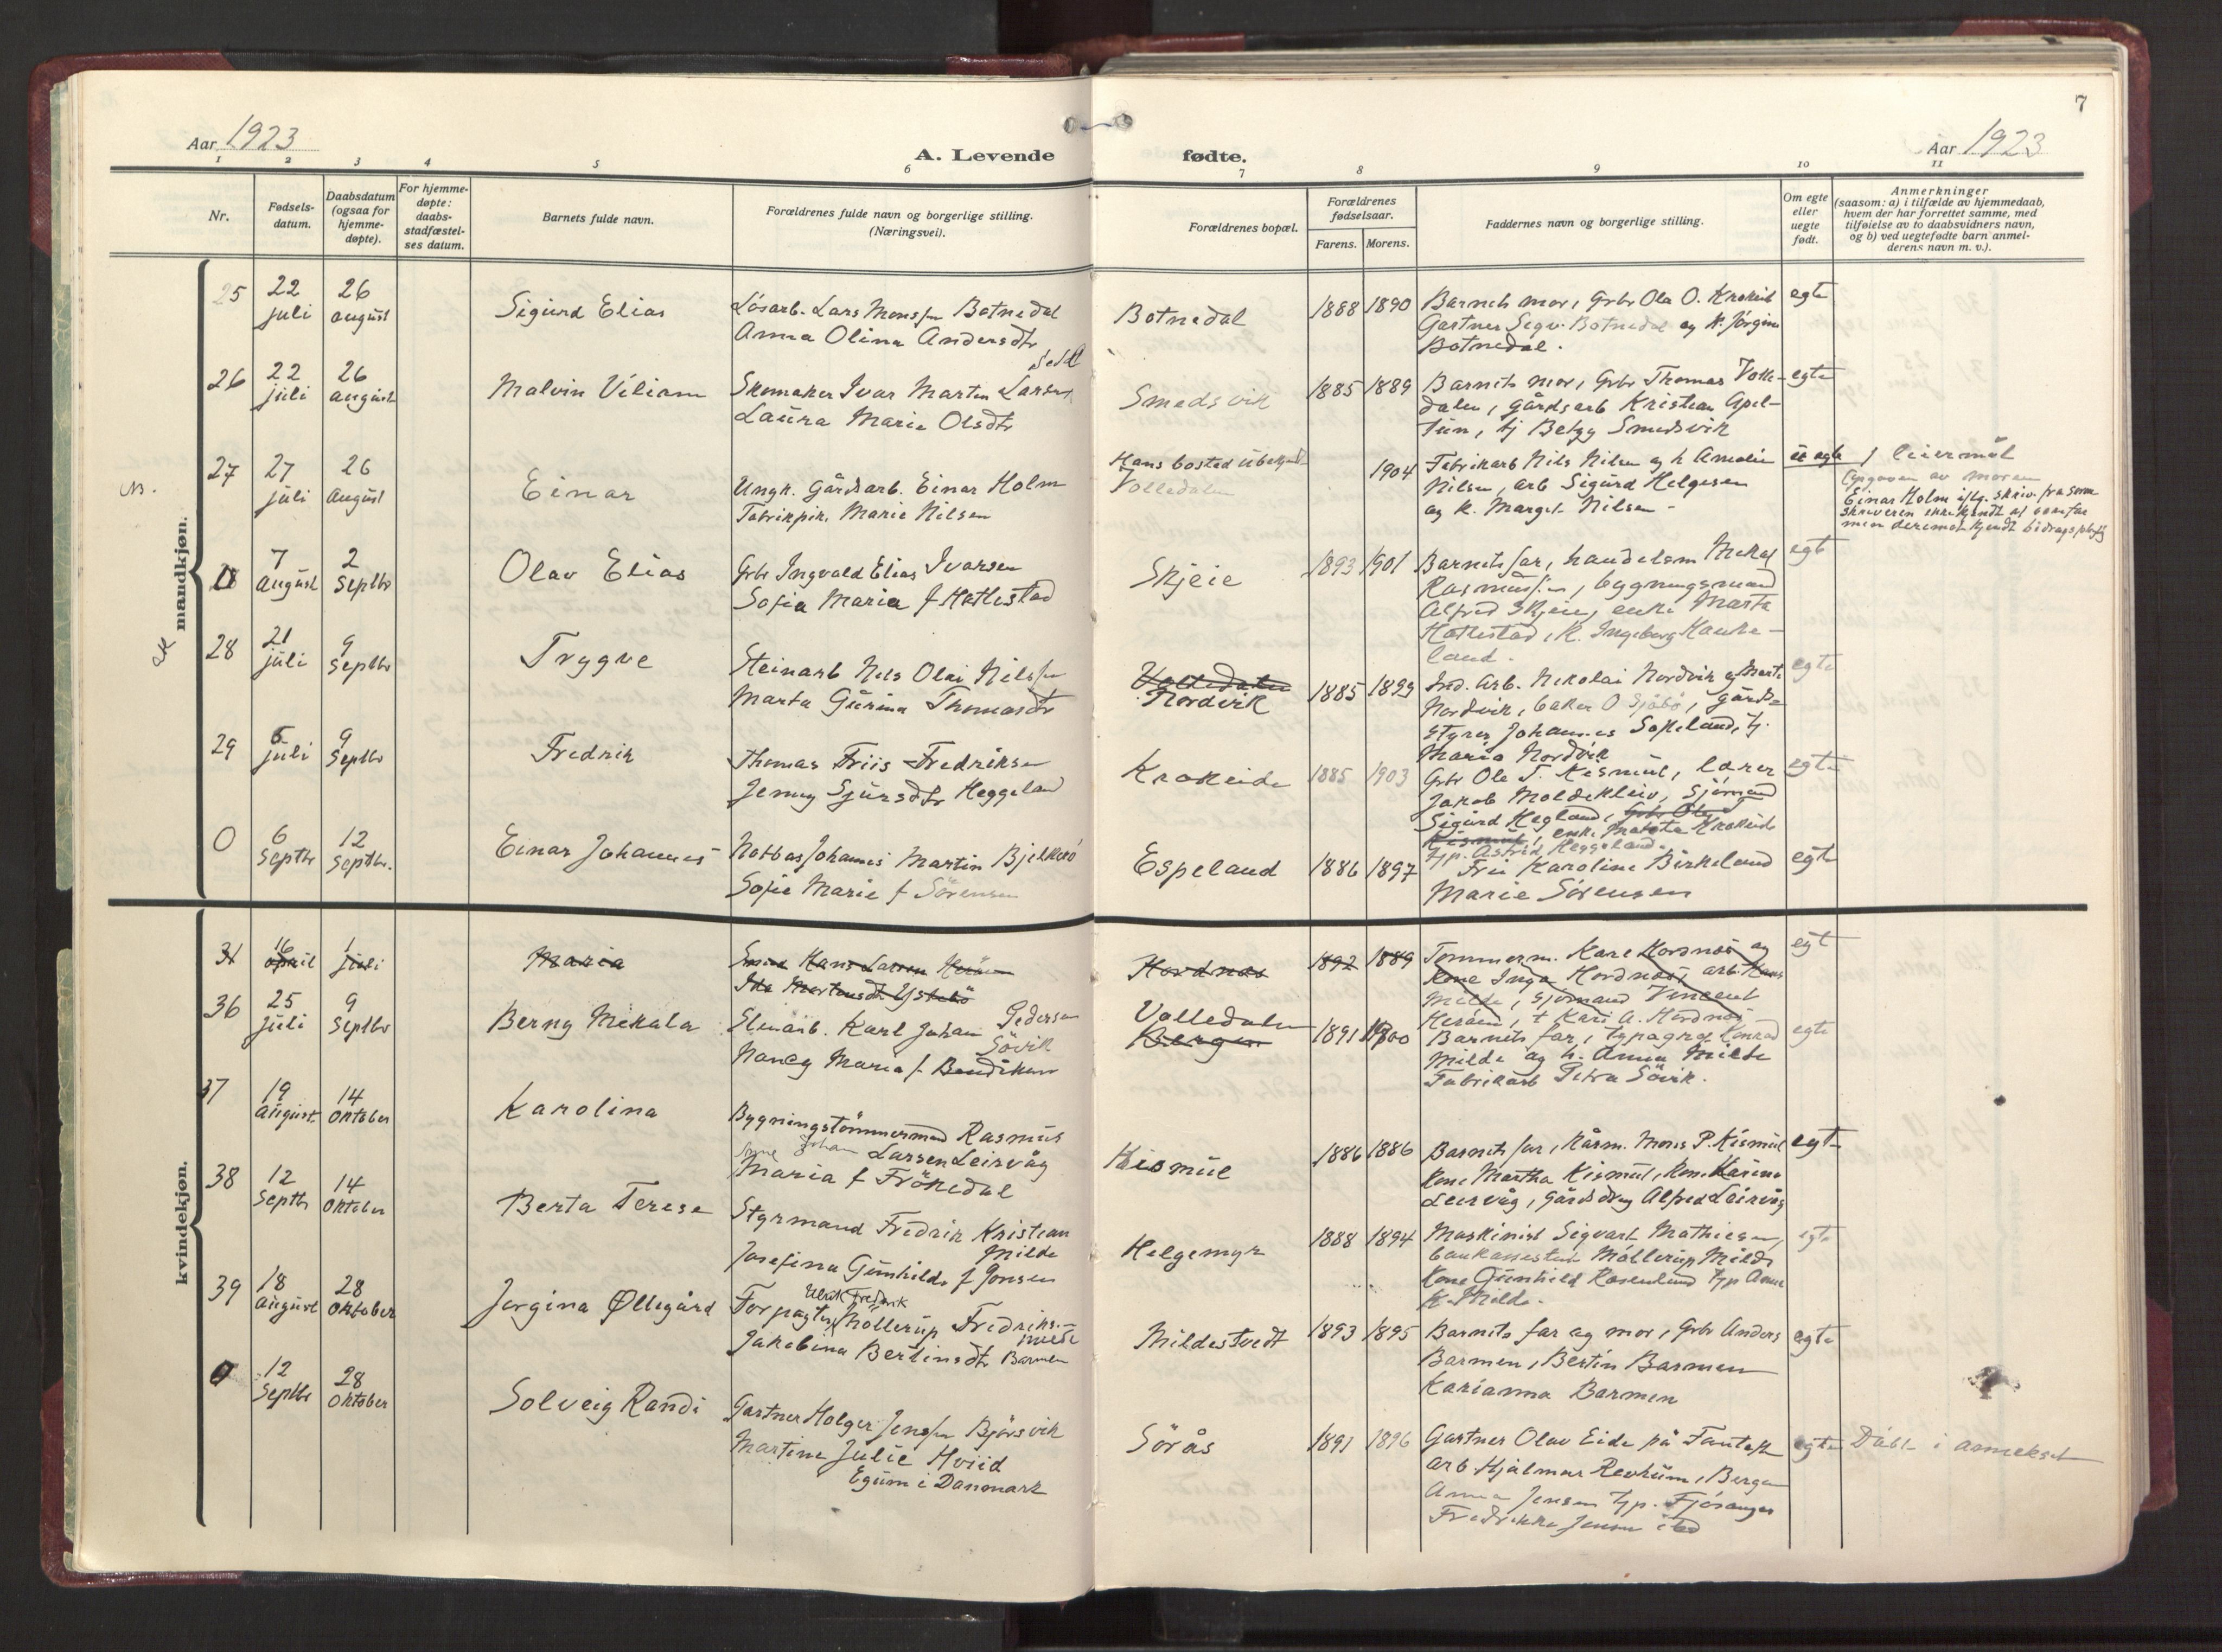 7
Aar 1923
A. Levende
fødte.
Aar 1923
1 2 3 4 5 6 7 8 9 10 11
Nr.
Fødsels-
datum.
Daabsdatum
(ogsaa for
hjemme-
døpte).
For hjemme-
døpte:
daabs-
stadfæstel-
ses datum.
Barnets fulde navn.
Forældrenes fulde navn og borgerlige stilling.
(Næringsvei).
Forældrenes bopæl.
Forældrenes
fødselsaar.
Farens. Morens.
Faddernes navn og borgerlige stilling.
Om egte
eller
uegte
født.
Anmerkninger
(saasom: a) i tilfælde av hjemmedaab,
hvem der har forrettet samme, med
tilføielse av to daabsvidners navn,
og b) ved uegtefødte barn anmel-
derens navn m. v.).
mandkjøn.
25
22
juli
26
august
Sigurd Elias
Løsarb. Lars Monssen Botnedal
Anna Olina Andersdtr
Botnedal
1888 1890
Barnets mor, Grbr Ola O. Krokeid
Gartner Sigv. Botnedal og k. Jørgine
Botnedal.
egte
26
22
juli
26
august
Malvin Viliam
Skomaker Ivar Martin Larsen
Laura Marie Olsdtr
Smedsvik
1885 1889
Barnets mor, Grbr Thomas Volle-
dalen, gårdsarb Kristian Apel-
tun, tj Betzy Smedsvik
egte
NB.
27
27
juli
26
august
Einar
Ungk. Gårdsarb. Einar Holm
Fabrikpik. Marie Nilsen
Hans bosted ubekjendt
Volledalen
1904
Fabrikarb Nils Nilsen og h Amalie
Nilsen, arb Sigurd Helgesen
og k. Margit Nilsen -
uegte
1 leiermål
Opgaven av moren
Einar Holm iflg. skriv. fra sorenskriveren ikke kjendt at være far
men derimot kjendt bidragspligtig
0
7
August
2
Septbr
Olav Elias
Grbr Ingvald Elias Ivarsen
Sofia Maria f Hatlestad
Skjeie
1893 1901
Barnets far, handelsm Mikal
Rasmussen, bygningsmand
Alfred Skjeie, enke Marta
Hatlestad, k. Ingeborg Hauke-
land.
egte
28
21
juli
9
Septbr
Trygve
Steinarb Nils Olai Nilssen
Marta Gurina Thomasdtr
Volledalen
Nordvik
1885 1899
Ind. arb. Nikolai Nordvik og Marta
Nordvik, baker O Sjøbø, gårds-
styrer Johannes Søfteland, tj.
Maria Nordvik
egte
29
5
juli
9
Septbr
Fredrik
Thomas Friis Fredriksen
Jenny Sjursdtr Heggeland
Krokeide
1885 1903
Grbr Ole T. Kismul, lærer
Jakob Moldekleiv, Sjømand
Sigurd Hegland, Grbr Ole
Kismul, enke Marta Krokeide
tjp. Astrid Heggeland.
egte
0
6
Septbr
12
Septbr.
Einar Johannes
Notbas Johannes Martin Bjelkerø
Sofie Marie f Sørensen
Espeland
1886 1897
Fru Karoline Birkeland
Marie Sørensen
egte
kvindekjøn.
31
16
april
1
juli
Maria
Smed Hans Larsen Herøen
Ida Mortensdtr Ystebø
Hordnæs
1892 1889
Tømmerm. Kare Hordnæs og
kone Inga Hordnæs, arb. Hans
Milde, sjømand Vincent
Herøen, t Kari A. Hordnæs
egt
36
25
juli
9
Septbr
Berny Mikala
Stenarb. Karl Johan Pedersen
Søvik
Nancy Maria f. Bendiksen
Volledalen
Bergen
1891 1900
Barnets far, typograf Konrad
Milde og h. Anna Milde
Fabrikarb Petra Søvik.
egte
37
19
august
14
Oktober
Karolina
Bygningstømmermand Rasmus
Johan Larsen Leirvåg
Maria f Frøkedal
Kismul
1886 1886
Barnets far, kårm. Mons P. Kismul
kone Martha Kismul, kone Karina
Leirvåg, gårdsdreng Alfred Leirvåg
egte
38
12
Septbr
14
Oktober
Berta Terese
Styrmand Fredrik Kristian
Milde
Josefina Gunhilda f Jonsen
Helgemyr
1888 1894
Maskinist Sigvart Mathiesen,
bankassistent Møllerup Milde
Kone Gunhild Rosenlund tjp Anna
K. Milde.
egte
39
18
August
28
Oktober
Jorgina Øllegård
Forpagter Ulrik Fredrik Møllerup Fredriks.-
Milde
Jakobina Bertinsdtr Barmen
Mildestvedt
1893 1895
Barnets far og mor, Grbr Anders
Barmen, Bertin Barmen
Karianna Barmen
egte
0
12
Septbr
28
Oktober
Solveig Randi
Gartner Holger Jenssen Bjørsvik
Martine Julie Hviid
Egum i Danmark
Sørås
1891 1896
Gartner Olav Eide på Fantoft
arb. Hjalmar Revheim, Bergen
Anna Jensen tjp. Fjøsanger
Fredrikke Jensen ibd
egte
Døbt i annekset